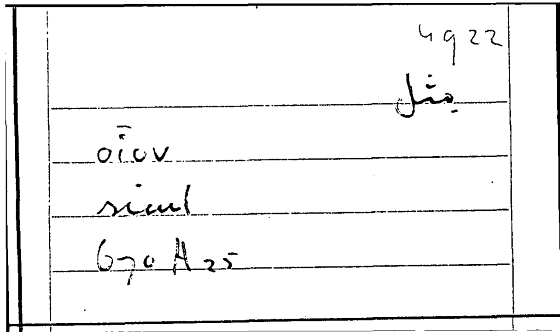 4922
مثل
οἷον
sicut
670 A 25